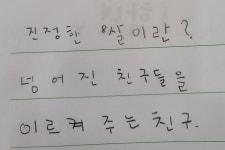 진정한 8살이란?
넘어진 친구들을
이르켜 주는 친구.